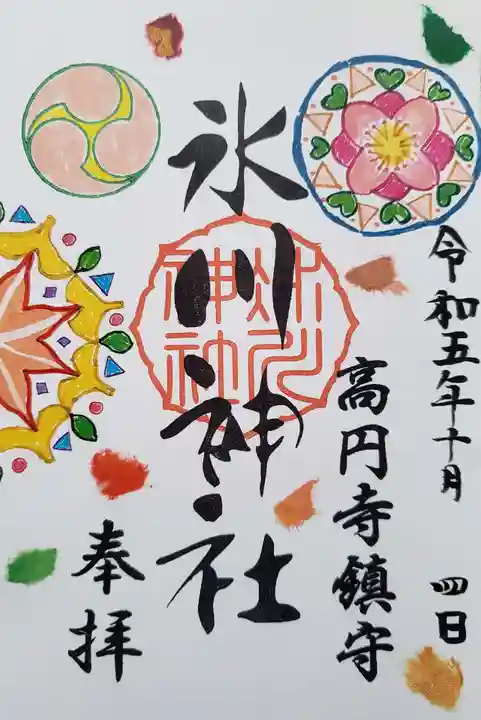 令和五年十月 四日
高円寺鎮守
氷川神社
氷川神社
奉拝